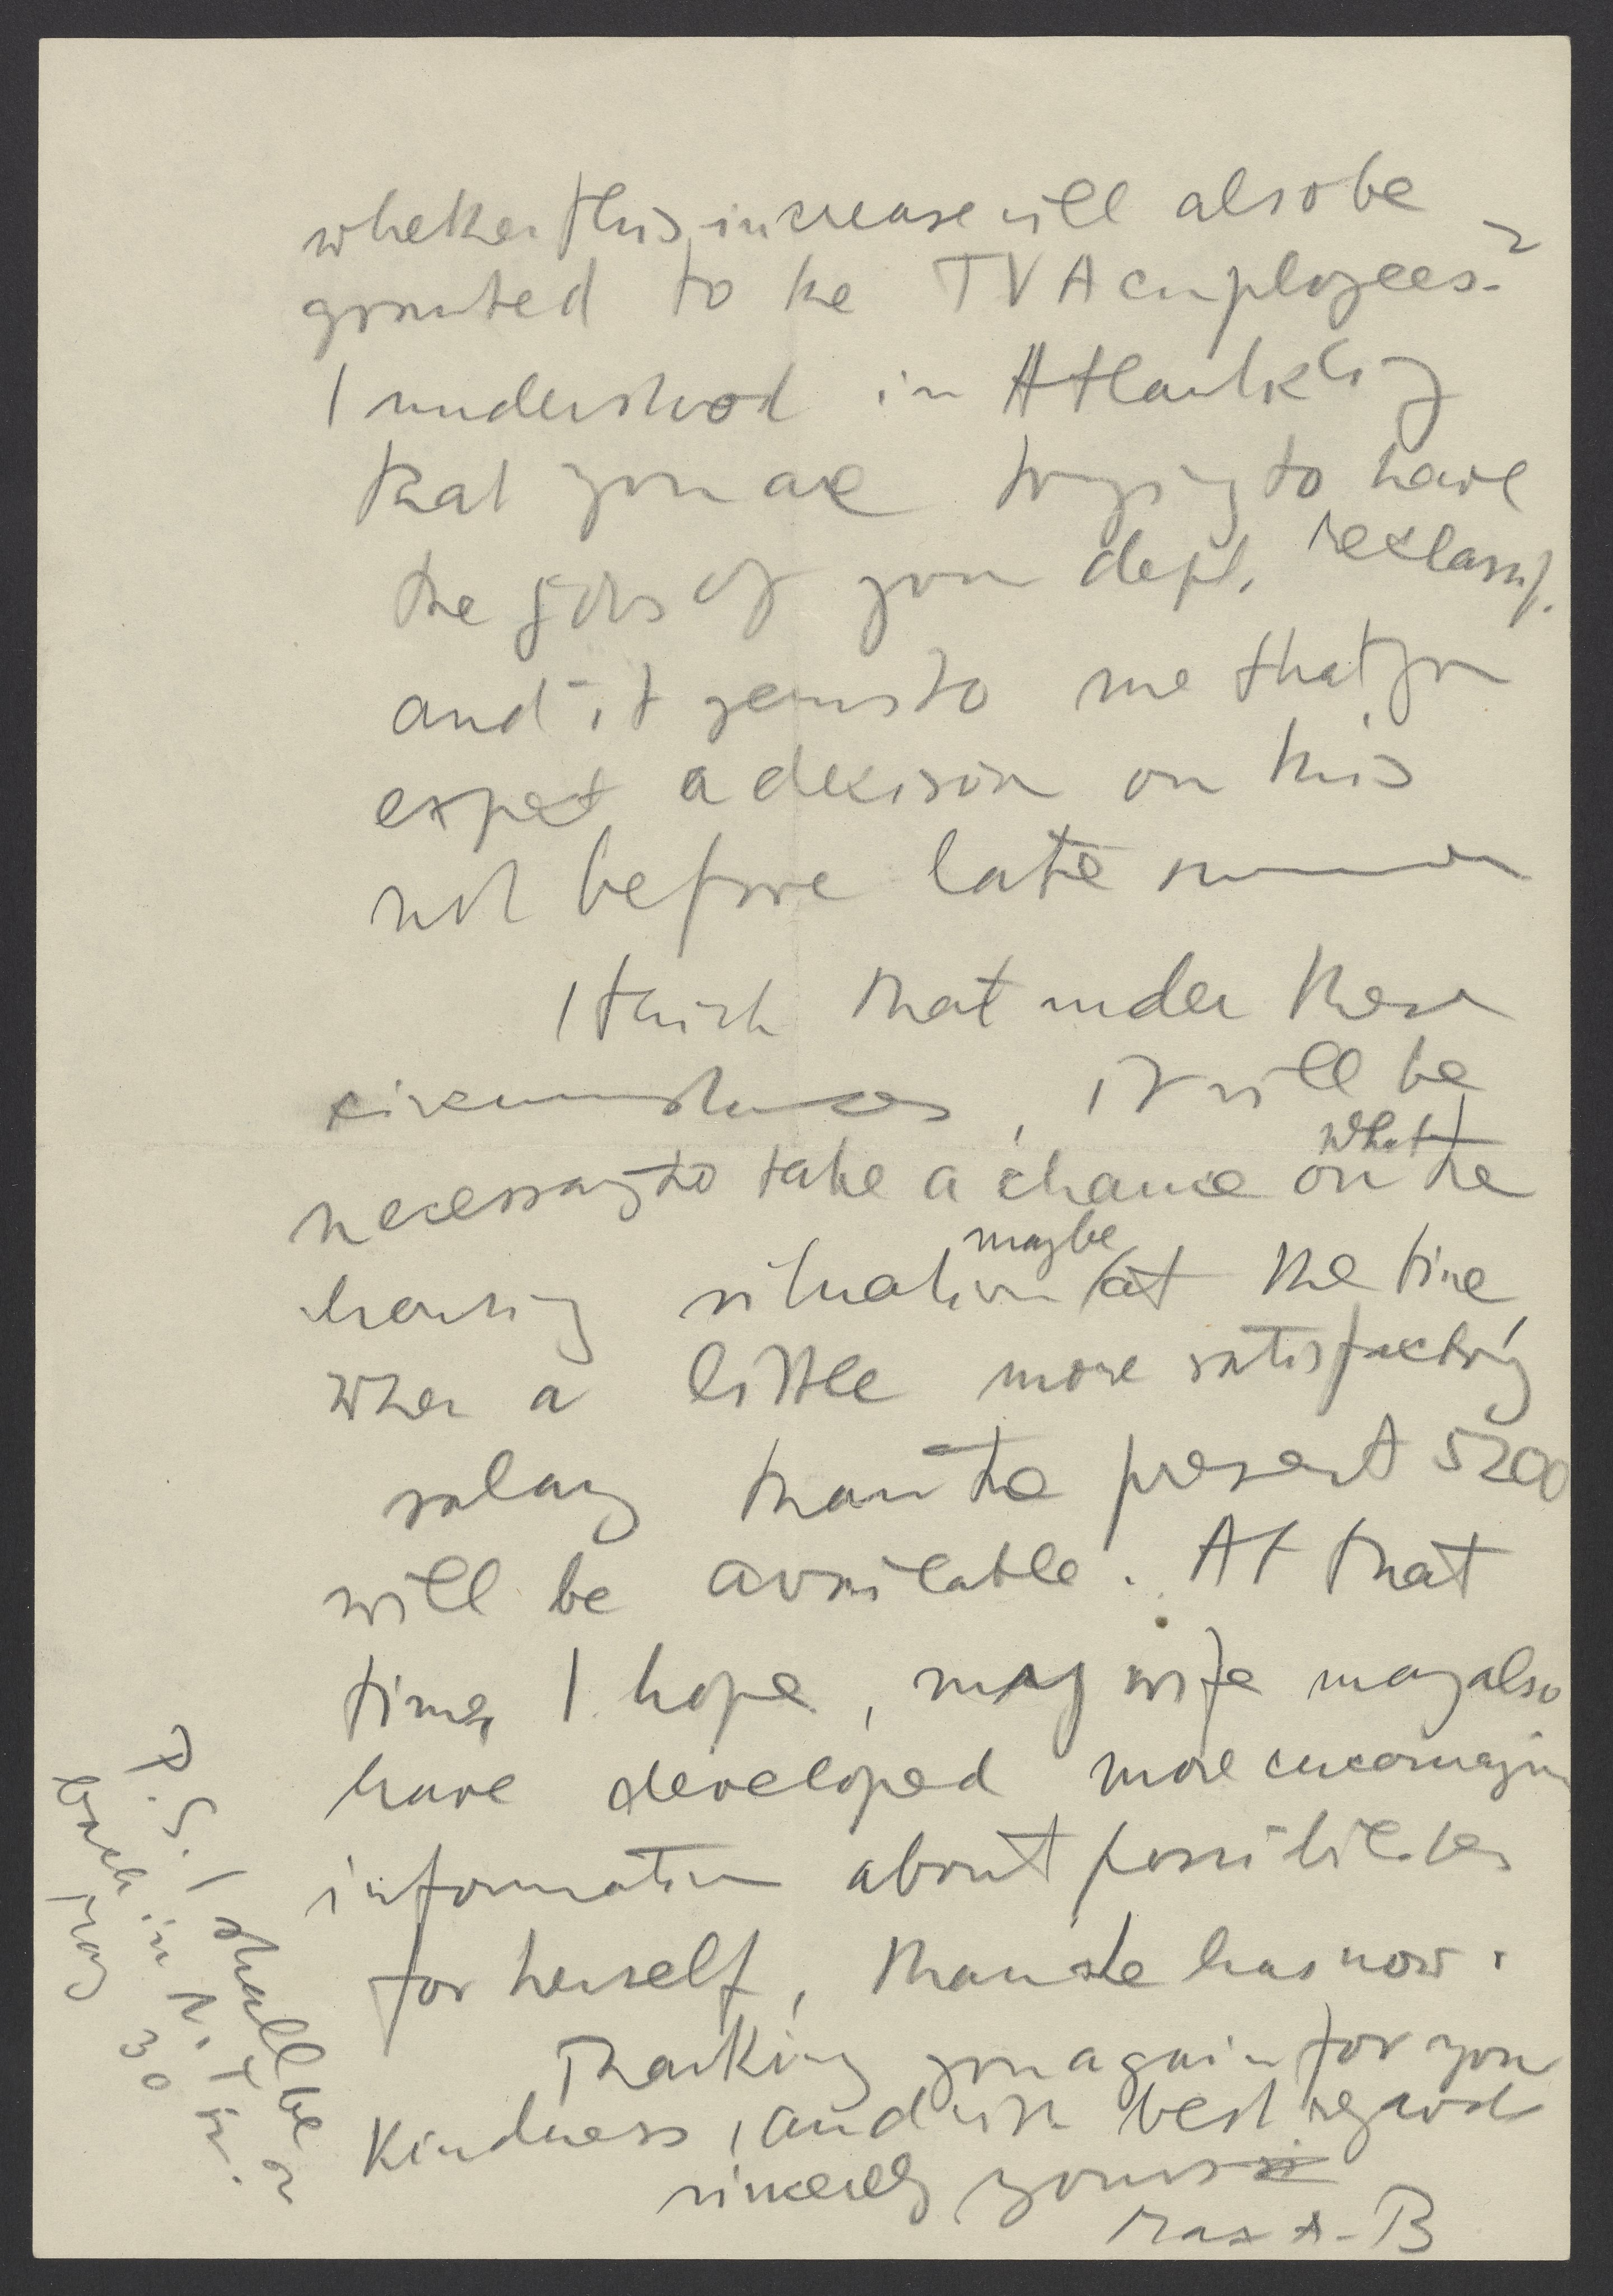 whether this increase will also be
granted to the TVA employees?
I understood in Atlantic City
that you are trying to have
the jobs of your dept. reclassif.
and it seems to me that you
expect a decision on this
not before late summer
I think that under these
circumstances, it will be
necessary to take a chance on what the
housing situation maybe at the time,
when a little more satisfactory
salary than the present 5200
will be available. At that
time, I hope, my wife may also
have developed more encouraging
information about possibilities
for herself, than she has now.
Thanking you again for your
Kindness, and with best regards
sincerely yours
Max A. B
P.S. I shall be
back in N.Y. on
May 30